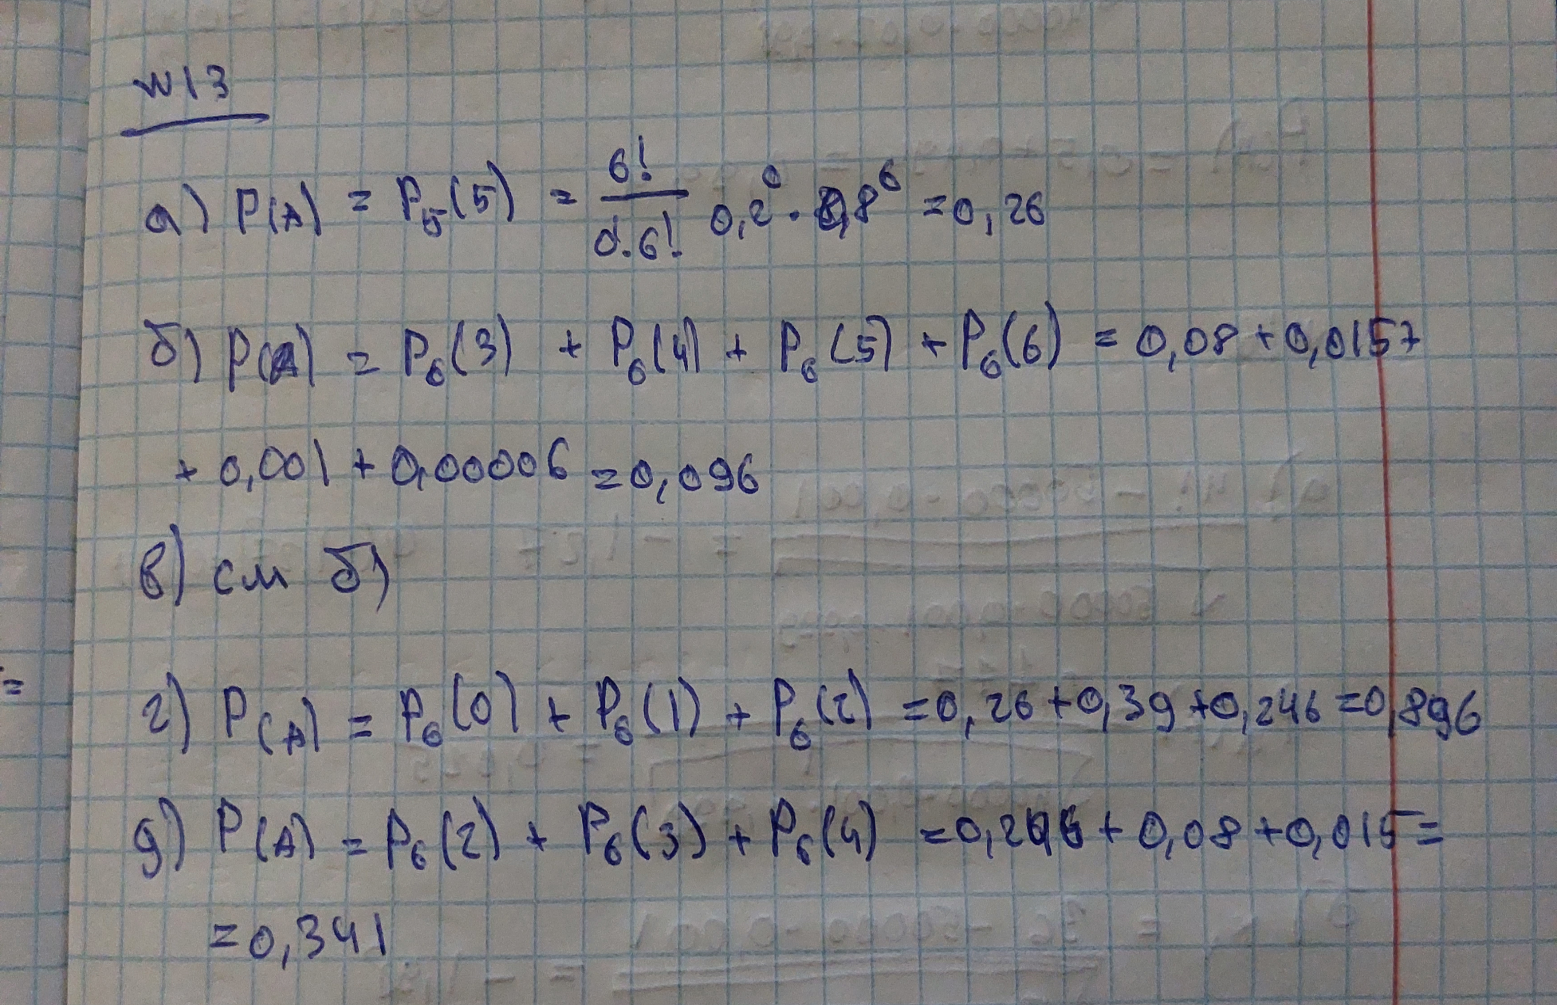 №13
а) P(A) = P₅(5) = 6!/(0!·6!) 0,2⁰ · 0,8⁶ = 0,26
б) P(A) = P₆(3) + P₆(4) + P₆(5) + P₆(6) = 0,08 + 0,015+
+ 0,001 + 0,00006 = 0,096
в) см б)
г) P(A) = P₆(0) + P₆(1) + P₆(2) = 0,26 + 0,39 + 0,246 = 0,896
д) P(A) = P₆(2) + P₆(3) + P₆(4) = 0,246 + 0,08 + 0,015 =
= 0,341